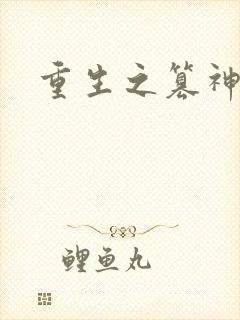 重生之篡神
鲤鱼丸